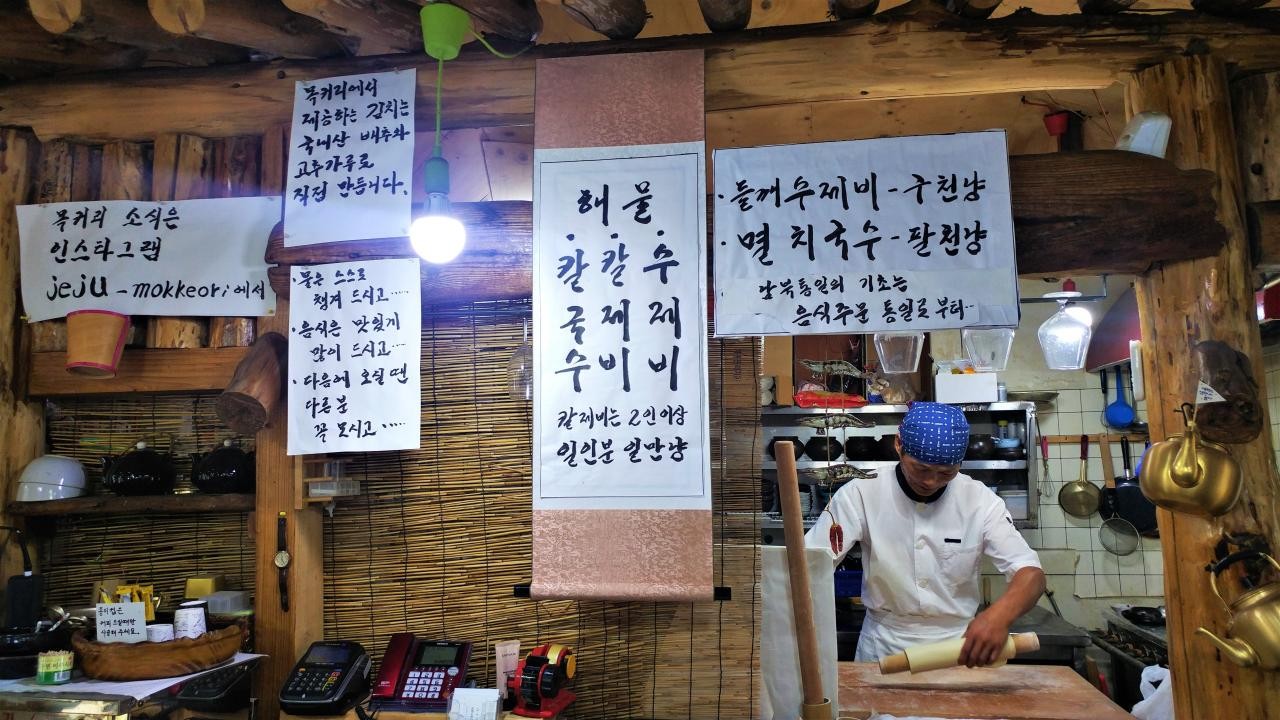 목커리에서
제공하는 김치는
국내산 배추와
고추가루로
직접 만듭니다.
목커리 소식은
인스타그램
jeju-mokkeori에서
·물은 스스로
챙겨 드시고······
·음식은 맛있게
많이 드시고····
·다음에 오실땐
다른분
꼭 모시고·····
해물
칼국수
칼제비
수제비
칼제비는 2인이상
일인분 일만냥
·들깨수제비-구천냥
·멸치국수-팔천냥
남북통일의 기초는
음식주문 통일로부터··
종이컵은
커피 드실때만
사용해 주세요..